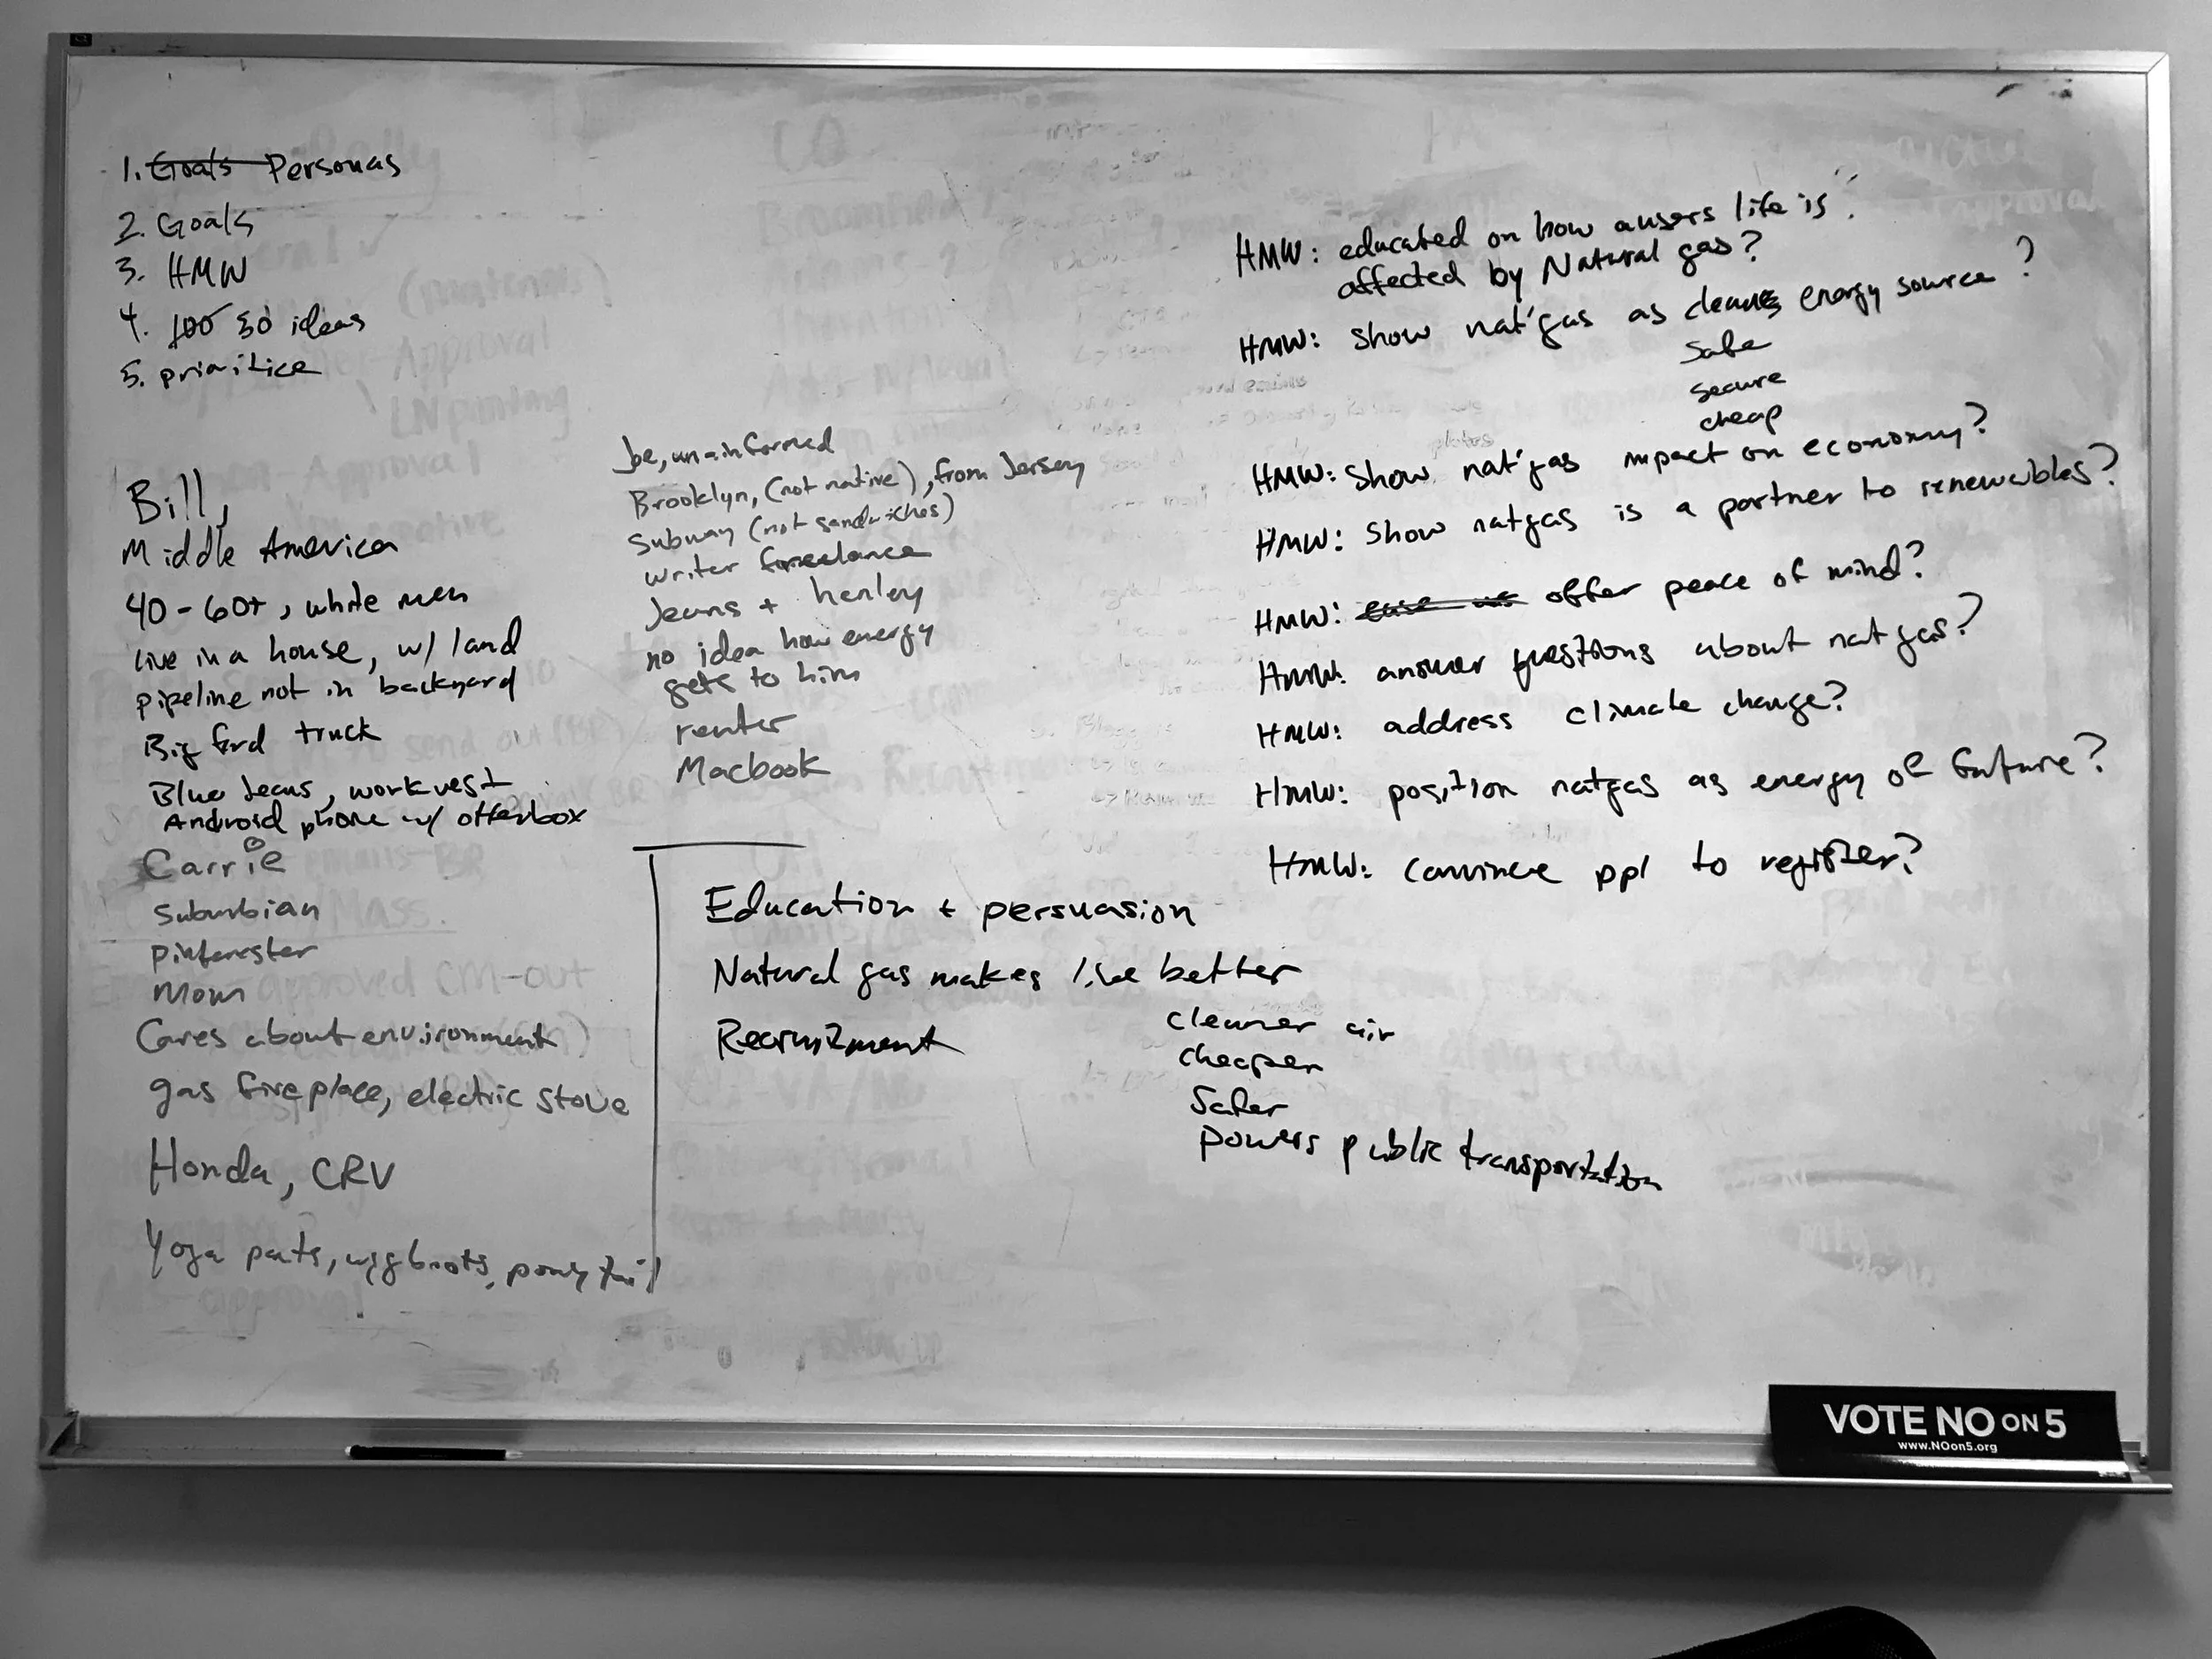 1. Goals Personas
2. Goals
3. HMW
4. 100 50 ideas
5. prioitice
Bill,
Middle America
40-60+, white men
live in a house, w/ land
pipeline not in backyard
Big ford truck
Blue Jeans, work vest
Android phone w/ otterbox
Carrie
Suburbian
pinterester
Mom
Cares about environment
gas fireplace, electric stove
Honda, CRV
Yoga pants, ugg boots, pony tail
Joe, uninformed
Brooklyn, (not native), from Jersey
Subway (not sandwiches)
writer freelance
Jeans + henley
no idea how energy
gets to him
renter
Macbook
Education + persuasion
Natural gas makes life better
cleaner air
Recruitment
cheaper
Safer
powers public transportation
HMW: educated on how a users life is
affected by Natural gas?
HMW: show nat'gas as clean energy source?
Safe
secure
cheap
HMW: show nat'gas impact on economy?
HMW: show natgas is a partner to renewables?
HMW: offer peace of mind?
HMW: answer questions about natgas?
HMW: address climate change?
HMW: position natgas as energy of future?
HMW: convince ppl to register?
VOTE NO ON 5
www.NOon5.org